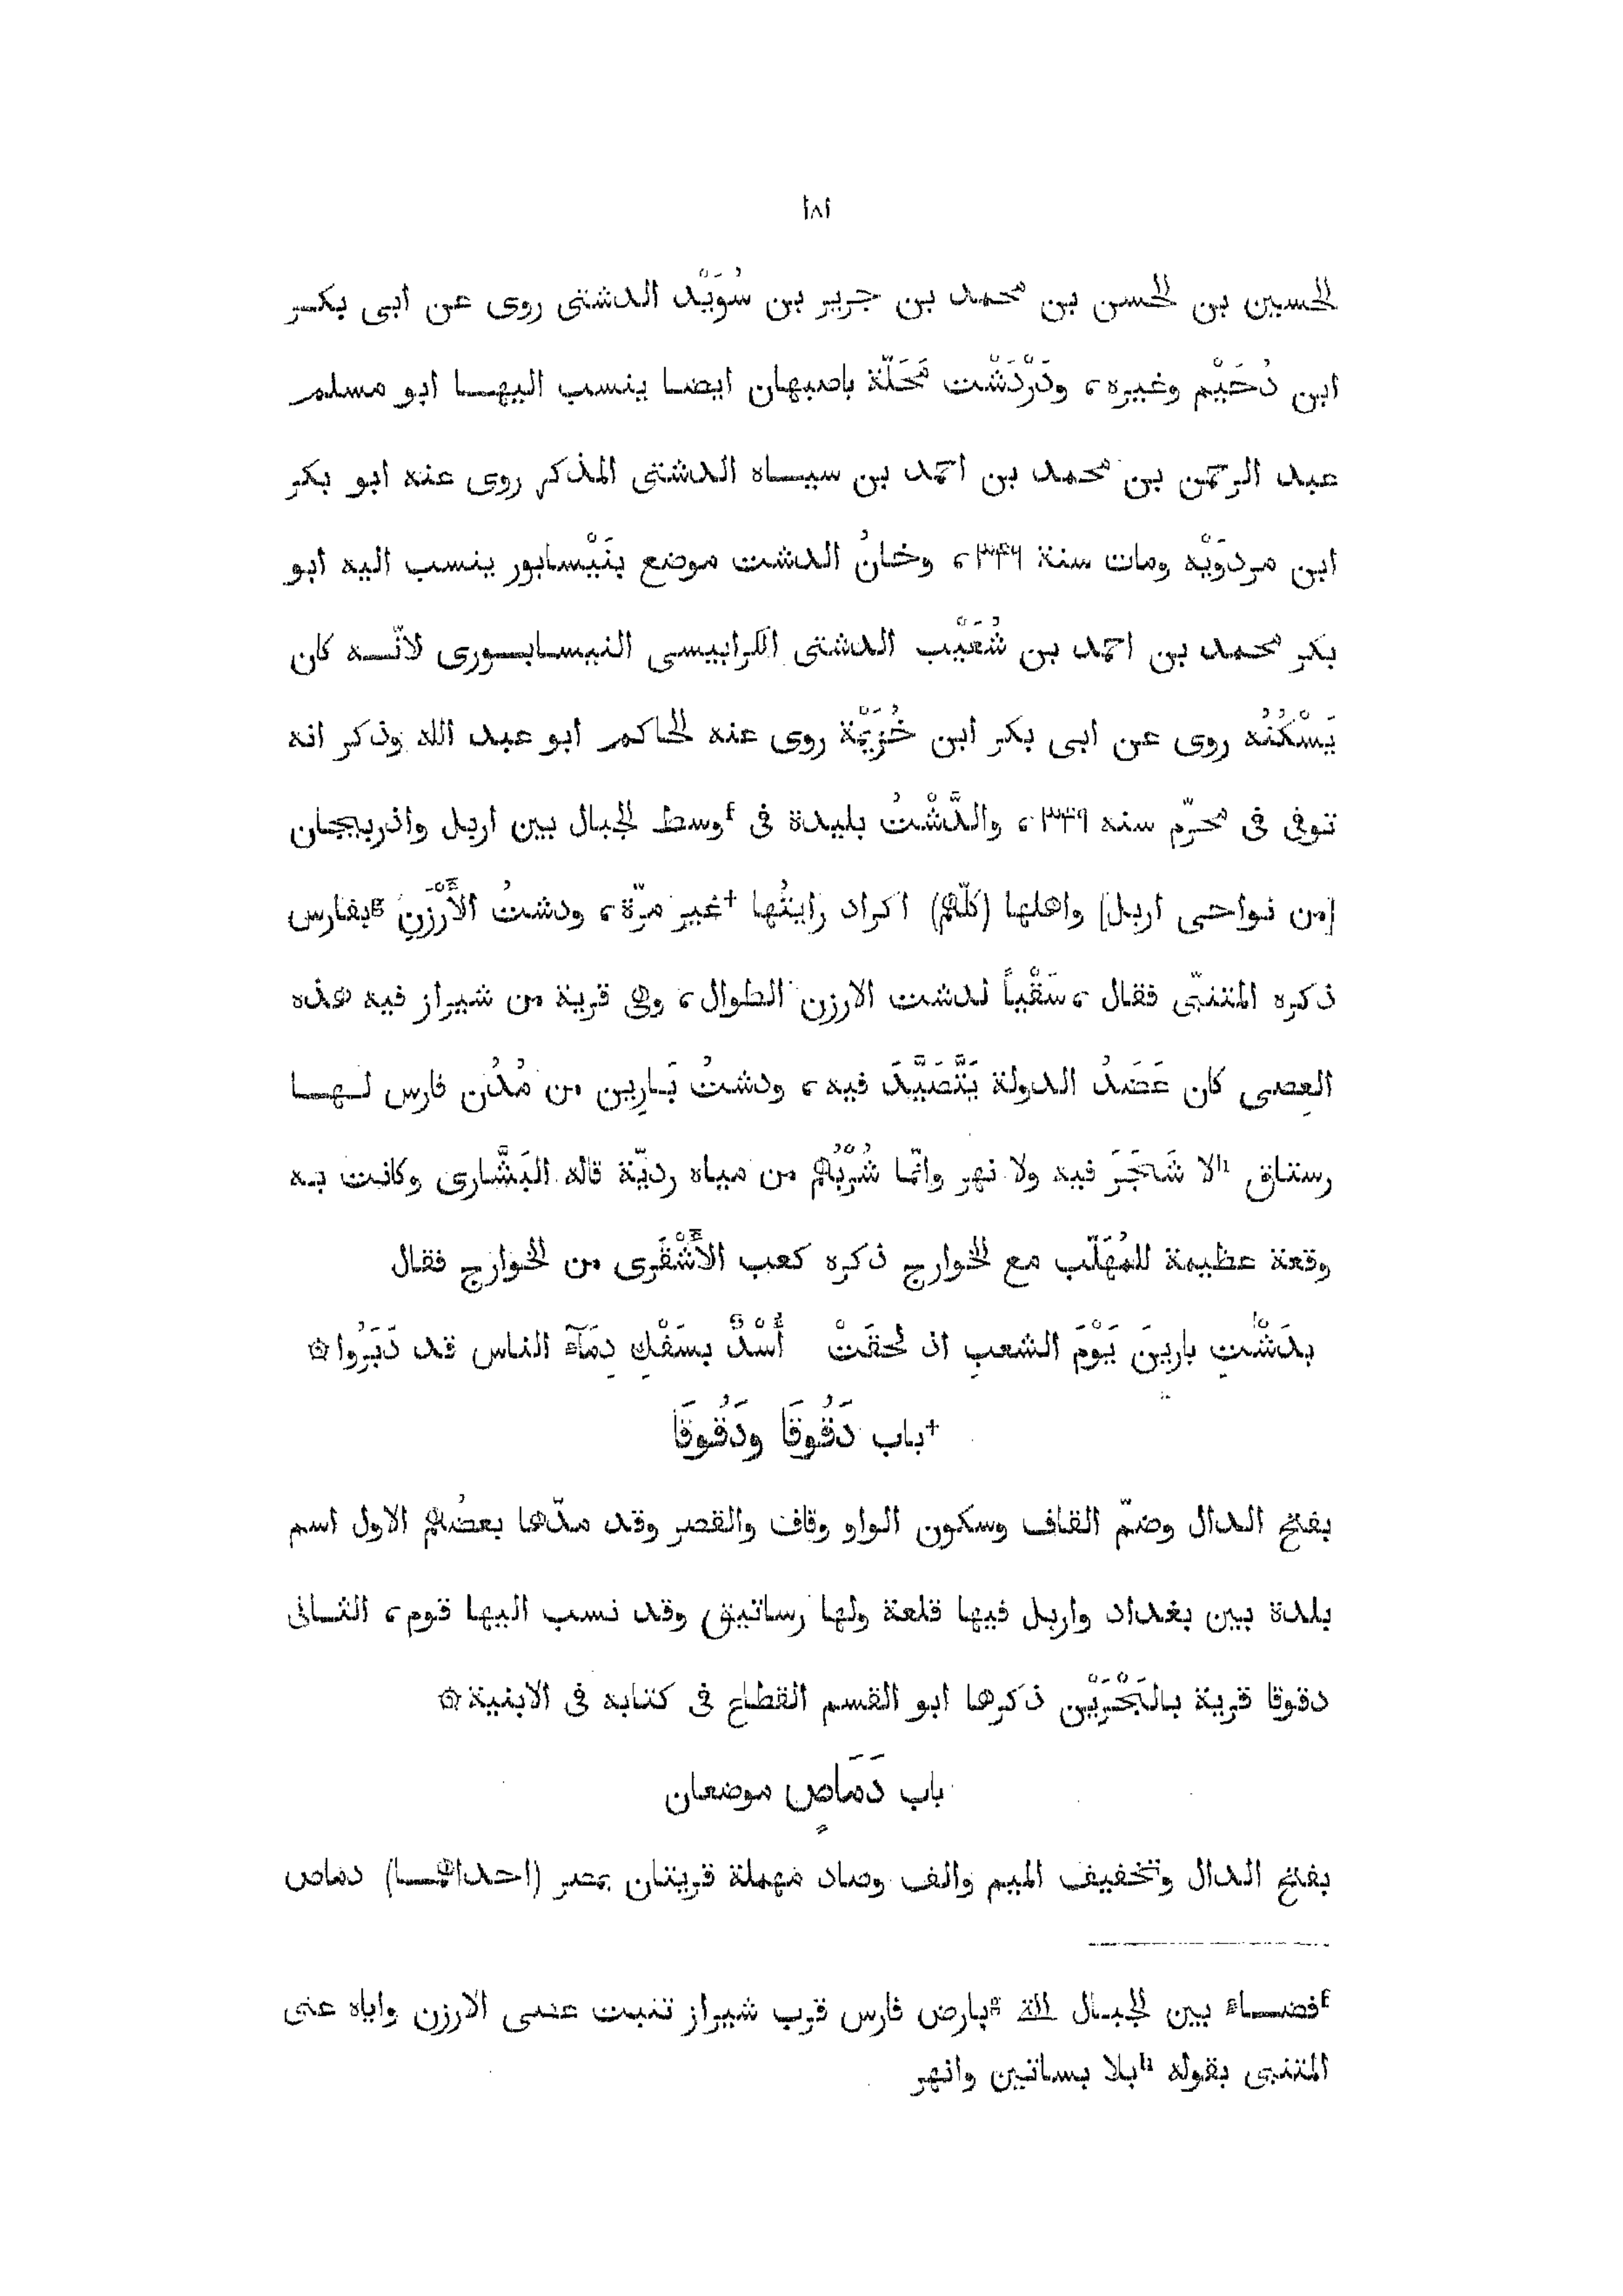 ١٨١
الحسين بن الحسن بن محمد بن جرير بن سُوَيْد الدشتى روى عن ابى بكر
ابن دُحَيْم وغيره، ودَرْدَشْت مَحَلّة باصبهان ايضا ينسب اليها ابو مسلم
عبد الرحمن بن محمد بن احمد بن سياه الدشتى المذكر روى عنه ابو بكر
ابن مردوَيْه ومات سنة ٣٤٦، وخانُ الدشت موضع بنَيْسابور ينسب اليه ابو
بكر محمد بن احمد بن شُعَيْب الدشتى الكرابيسى النيسابورى لانّه كان
يَسْكُنُه روى عن ابى بكر ابن خُزَيْمَة روى عنه الحاكم ابو عبد الله وذكر انه
توفى فى محرّم سنه ٣٤٩، والدَّشْتُ بليدة فى ᶠوسط الجبال بين اربل واذربيجان
[من نواحى اربل] واهلها (كلّهم) اكراد رايتُها †غير مرّة، ودشتُ الأَرْزَنِ ᵍبفارس
ذكره المتنبّى فقال، سَقْياً لدشت الارزن الطوال، وفى قرية من شيراز فيه هذه
العِصى كان عَضَدُ الدولة يَتَّصَيَّدَ فيه، ودشتُ بَارِين من مُدُن فارس لها
رستاق ʰلا شَجَرَ فيه ولا نهر وانّما شُرْبُهُم من مياه رديّة قاله البَشَّارى وكانت به
وقعة عظيمة للمُهَلَّب مع الخوارج ذكره كعب الأَشْقَرى من الخوارج فقال
بدَشْتِ بارِينَ يَوْمَ الشعبِ اذ لحقَتْ أُسْدٌ بسَفْكِ دِمَآءِ الناس قد دَبَرُوا ۞
†باب دَقُوقَا ودَقُوقَا
بفتح الدال وضمّ القاف وسكون الواو وقاف والقصر وقد مدّها بعضُهم الاول اسم
بلدة بين بغداد واربل فيها قلعة ولها رساتيق وقد نسب اليها قوم، الثانى
دقوقا قرية بالبَحْرَيْن ذكرها ابو القسم القطاع فى كتابه فى الابنية ۞
باب دَمَاصٍ موضعان
بفتح الدال وتخفيف الميم والف وصاد مهملة قريتان بمصر (احداهما) دماص
ᶠفضاء بين الجبال الخ ᵍبارض فارس قرب شيراز تنبت عصى الارزن واياه عنى
المتنبى بقوله ʰبلا بساتين وانهر